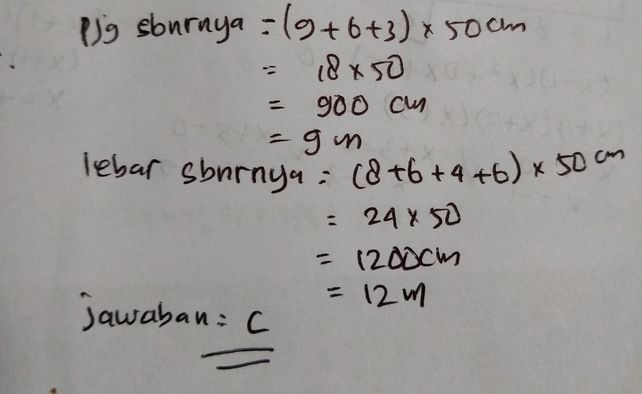 Pjg sbnrnya = (9+6+3) × 50 cm
= 18 × 50
= 900 cm
= 9 m
lebar sbnrnya = (8+6+4+6) × 50 cm
= 24 × 50
= 1200 cm
= 12 m
jawaban = C